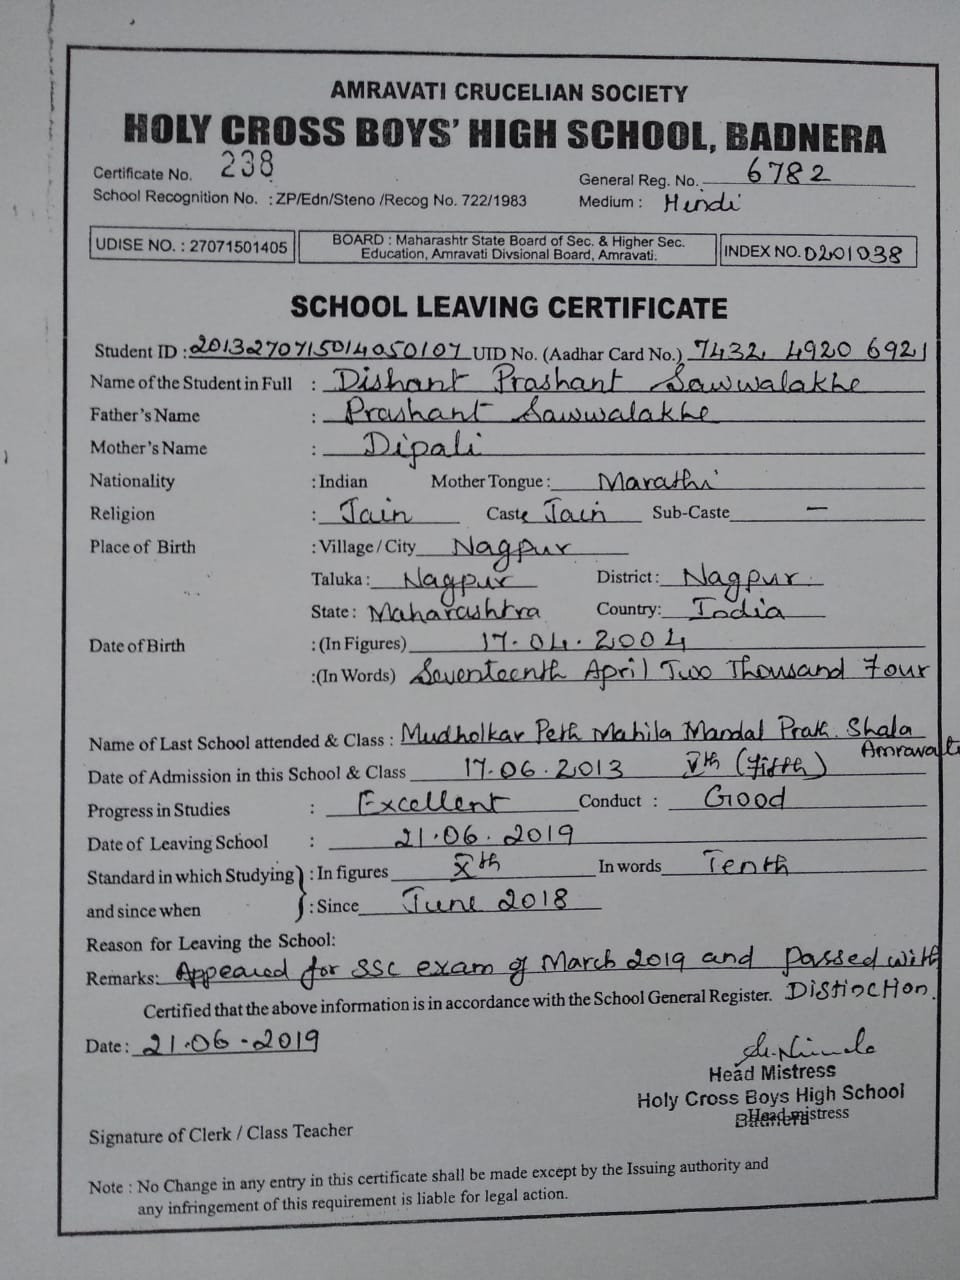 AMRAVATI CRUCELIAN SOCIETY
HOLY CROSS BOYS' HIGH SCHOOL, BADNERA
Certificate No. 238 General Reg. No. 6782
School Recognition No. : ZP/Edn/Steno /Recog No. 722/1983 Medium : Hindi
UDISE NO. : 27071501405 BOARD : Maharashtr State Board of Sec. & Higher Sec. INDEX NO. 0201038
Education, Amravati Divsional Board, Amravati.
SCHOOL LEAVING CERTIFICATE
Student ID : 2013270715014050107 UID No. (Aadhar Card No.) 7432 4920 6921
Name of the Student in Full : Dishant Prashant Sawwalakhe
Father's Name : Prashant Sawwalakhe
Mother's Name : Dipali
Nationality : Indian Mother Tongue : Marathi
Religion : Jain Caste Jain Sub-Caste —
Place of Birth : Village / City Nagpur
Taluka : Nagpur District : Nagpur
State : Maharashtra Country: India
Date of Birth : (In Figures) 17.04.2004
:(In Words) Seventeenth April Two Thousand Four
Name of Last School attended & Class : Mudholkar Peth Mahila Mandal Prath. Shala
Amravati
Date of Admission in this School & Class 17.06.2013 Vth (fifth)
Progress in Studies : Excellent Conduct : Good
Date of Leaving School : 21.06.2019
Standard in which Studying : In figures Xth In words Tenth
and since when : Since June 2018
Reason for Leaving the School:
Remarks: Appeared for SSC exam of March 2019 and Passed with
Certified that the above information is in accordance with the School General Register. Distinction.
Date : 21.06.2019
Head Mistress
Holy Cross Boys High School
Badnera
Headmistress
Signature of Clerk / Class Teacher
Note : No Change in any entry in this certificate shall be made except by the Issuing authority and
any infringement of this requirement is liable for legal action.